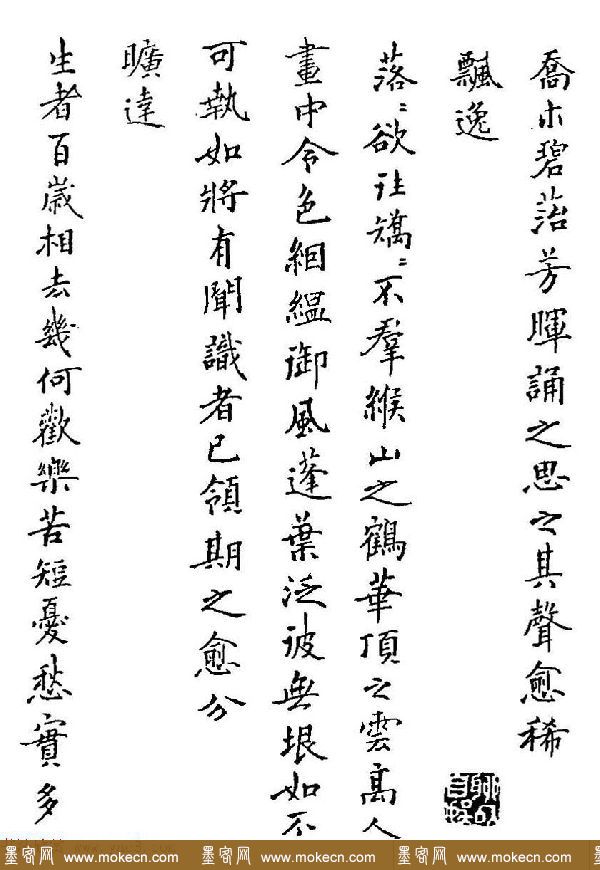 喬木碧菭芳暉誦之思之其聲愈稀
飄逸
落〻欲往矯〻不羣緱山之鶴華頂之雲高人
畫中令色絪縕御風蓬葉泛彼無垠如不
可執如將有聞識者已領期之愈分
曠達
生者百歲相去幾何歡樂苦短憂愁實多
聊以自娛
墨客网 www.mokecn.com 墨客网 www.mokecn.com 墨客网 www.mokecn.com